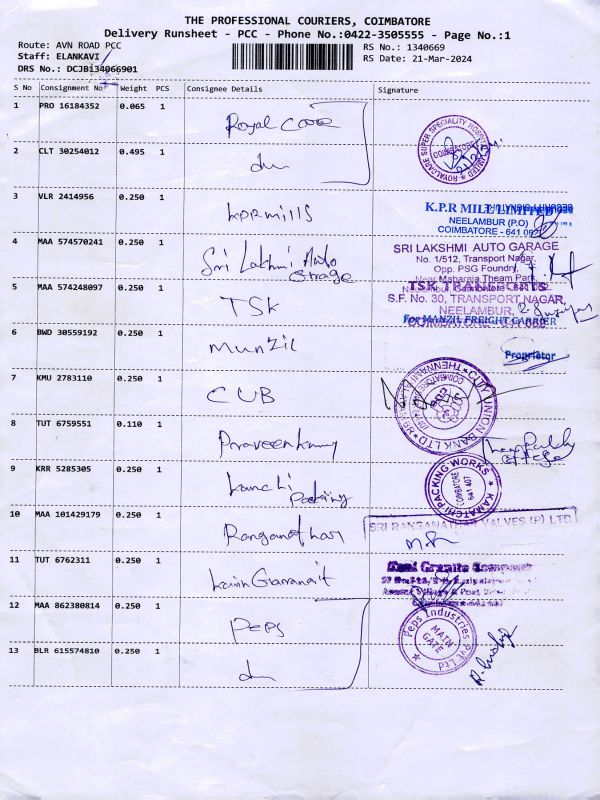 THE PROFESSIONAL COURIERS, COIMBATORE
Delivery Runsheet - PCC - Phone No.:0422-3505555 - Page No.:1
Route: AVN ROAD PCC
RS No.: 1340669
Staff: ELANKAVI
RS Date: 21-Mar-2024
DRS No.: DCJBi34066901
S No Consignment No Weight PCS Consignee Details Signature
1 PRO 16184352 0.065 1 Royal Care
2 CLT 30254012 0.495 1 du
ROYALCARE SUPER SPECIALITY HOSPITAL LIMITED
COIMBATORE
3 VLR 2414956 0.250 1 kpr mills
K.P.R MILL LIMITED
NEELAMBUR (P.O)
COIMBATORE - 641 062
4 MAA 574570241 0.250 1 Sri Lakhmi Auto
Grage
SRI LAKSHMI AUTO GARAGE
No. 1/512, Transport Nagar,
Opp. PSG Foundry,
Near Maharaja Theam Park,
5 MAA 574248097 0.250 1 TSK
TSK TRANSPORTS
S.F. No. 30, TRANSPORT NAGAR,
NEELAMBUR,
6 BWD 30559192 0.250 1 Munzil
For MANZIL FREIGHT CARRIER
Proprietor
7 KMU 2783110 0.250 1 CUB
CITY UNION BANK LTD
8 TUT 6759551 0.110 1 Praveenkumy
9 KRR 5285305 0.250 1 kamchi
Packing
KAMATCHI PACKING WORKS
COIMBATORE
641 407
10 MAA 101429179 0.250 1 Ranganathar
SRI RANGANATHAR VALVES (P) LTD
11 TUT 6762311 0.250 1
12 MAA 862380814 0.250 1 Peps
Peps Industries Pvt Ltd
MAIN
GATE
13 BLR 615574810 0.250 1 du